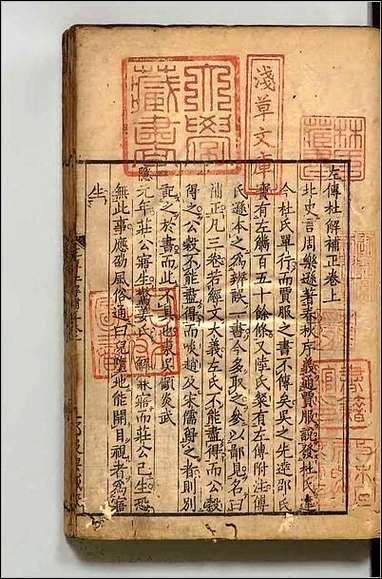 左傳杜解補正卷上
北史言周樂遜著春秋序義通賈服說發杜氏違
今杜氏單行而賈服之書不傳矣吳之先達邵氏
寶有左觿百五十餘條又陸氏粲有左傳附注傅
氏遜本之為辨誤一書今多取之參以鄙見名曰
補正凡三卷若經文大義左氏不能盡得而公穀
得之公穀不能盡得而啖趙及宋儒得之者則別
記之於書而此不具也東吳顧炎武
隱元年莊公寤生驚姜氏 解寐寤而莊公已生恐
無此事應劭風俗通曰兒墮地能開目視者為寤
生
淺草文庫
藏書